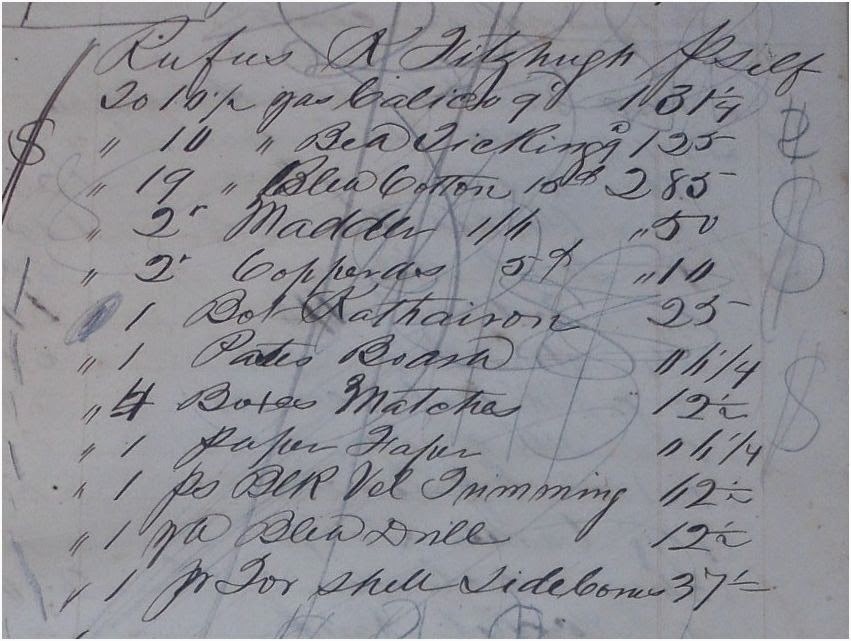 Rufus K Fitzhugh pSelf
To 10 1/2 yds Calico 9d 1 31 1/4
" 10 " Bed Ticking 1 25
" 19 " Blea Cotton 15d 2 85
" 2 " Madder " 50
" 2 " Copperas 5d " 10
" 1 Bot Kathairon 25
" 1 Board " 6 1/4
" 4 Boxes Matches 12 1/2
" 1 paper " 6 1/4
" 1 ps Blk Vel Trimming 12 1/2
" 1 yd Blea Drill 12 1/2
" 1 pr Tor Shell Side Combs 37 1/2